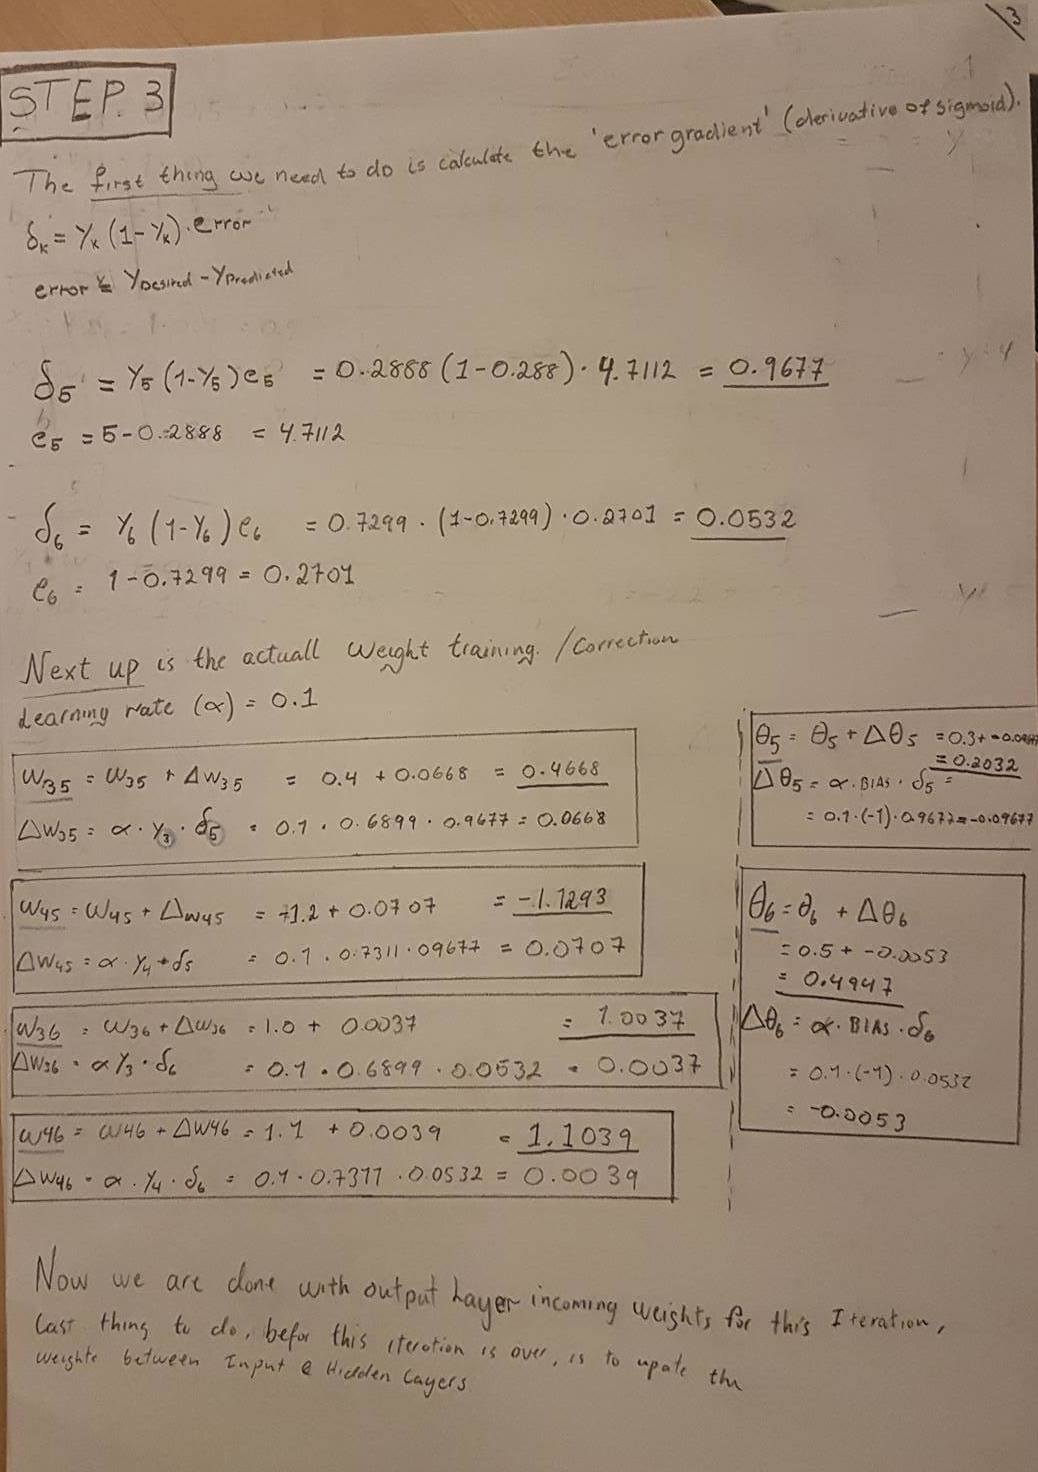 3
STEP. 3
The first thing we need to do is calculate the 'error gradient' (derivative of sigmoid).
δk = Yk (1-Yk) · error
error = YDesired - YPredicted
δ5 = Y5 (1-Y5) e5 = 0.2888 (1-0.288) · 4.7112 = 0.9677
e5 = 5-0.2888 = 4.7112
δ6 = Y6 (1-Y6) e6 = 0.7299 · (1-0.7299) · 0.2701 = 0.0532
e6 = 1-0.7299 = 0.2701
Next up is the actuall weight training. /Correction
Learning rate (α) = 0.1
W35 = W35 + ΔW35 = 0.4 + 0.0668 = 0.4668
ΔW35 = α · Y3 · δ5 = 0.1 · 0.6899 · 0.9677 = 0.0668
W45 = W45 + ΔW45 = -1.2 + 0.0707 = -1.1293
ΔW45 = α · Y4 · δ5 = 0.1 · 0.7311 · 09677 = 0.0707
W36 = W36 + ΔW36 = 1.0 + 0.0037 = 1.0037
ΔW36 = α Y3 · δ6 = 0.1 · 0.6899 · 0.0532 = 0.0037
W46 = W46 + ΔW46 = 1.1 + 0.0039 = 1.1039
ΔW46 = α · Y4 · δ6 = 0.1 · 0.7311 · 0.0532 = 0.0039
θ5 = θ5 + Δθ5 = 0.3 + -0.0967
= 0.2032
Δθ5 = α · BIAS · δ5 =
= 0.1 · (-1) · 0.9677 = -0.09677
θ6 = θ6 + Δθ6
= 0.5 + -0.0053
= 0.4947
Δθ6 = α · BIAS · δ6
= 0.1 · (-1) · 0.0532
= -0.0053
Now we are done with output Layer incoming weights for this Iteration,
Last thing to do, befor this iteration is over, is to upate the
weights between Input & Hidden Layers